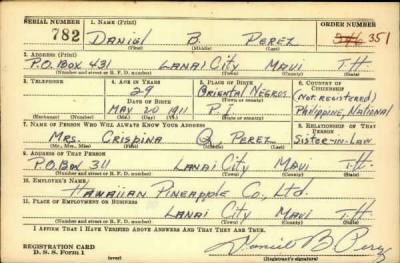 SERIAL NUMBER 1. NAME (Print) ORDER NUMBER
782 DANIEL B. PEREZ 351
(First) (Middle) (Last)
2. ADDRESS (Print)
P.O. BOX 431 LANAI CITY MAUI T.H.
(Number and street or R. F. D. number) (Town) (County) (State)
3. TELEPHONE 4. AGE IN YEARS 5. PLACE OF BIRTH 6. COUNTRY OF CITIZENSHIP
29 ORIENTAL NEGROS (NOT REGISTERED)
DATE OF BIRTH (Town or county)
MAY 20 1911 P.I. PHILIPPINE, NATIONAL
(Exchange) (Number) (Mo.) (Day) (Yr.) (State or country)
7. NAME OF PERSON WHO WILL ALWAYS KNOW YOUR ADDRESS 8. RELATIONSHIP OF THAT PERSON
MRS. CRISPINA Q PEREZ SISTER-IN-LAW
(Mr., Mrs., Miss) (First) (Middle) (Last)
9. ADDRESS OF THAT PERSON
P.O. BOX 311 LANAI CITY MAUI T.H.
(Number and street or R. F. D. number) (Town) (County) (State)
10. EMPLOYER'S NAME
HAWAIIAN PINEAPPLE CO., LTD.
11. PLACE OF EMPLOYMENT OR BUSINESS
LANAI CITY MAUI T.H.
(Number and street or R. F. D. number) (Town) (County) (State)
I AFFIRM THAT I HAVE VERIFIED ABOVE ANSWERS AND THAT THEY ARE TRUE.
REGISTRATION CARD
D. S. S. Form 1 (over) Daniel B. Perez
(Registrant's signature)